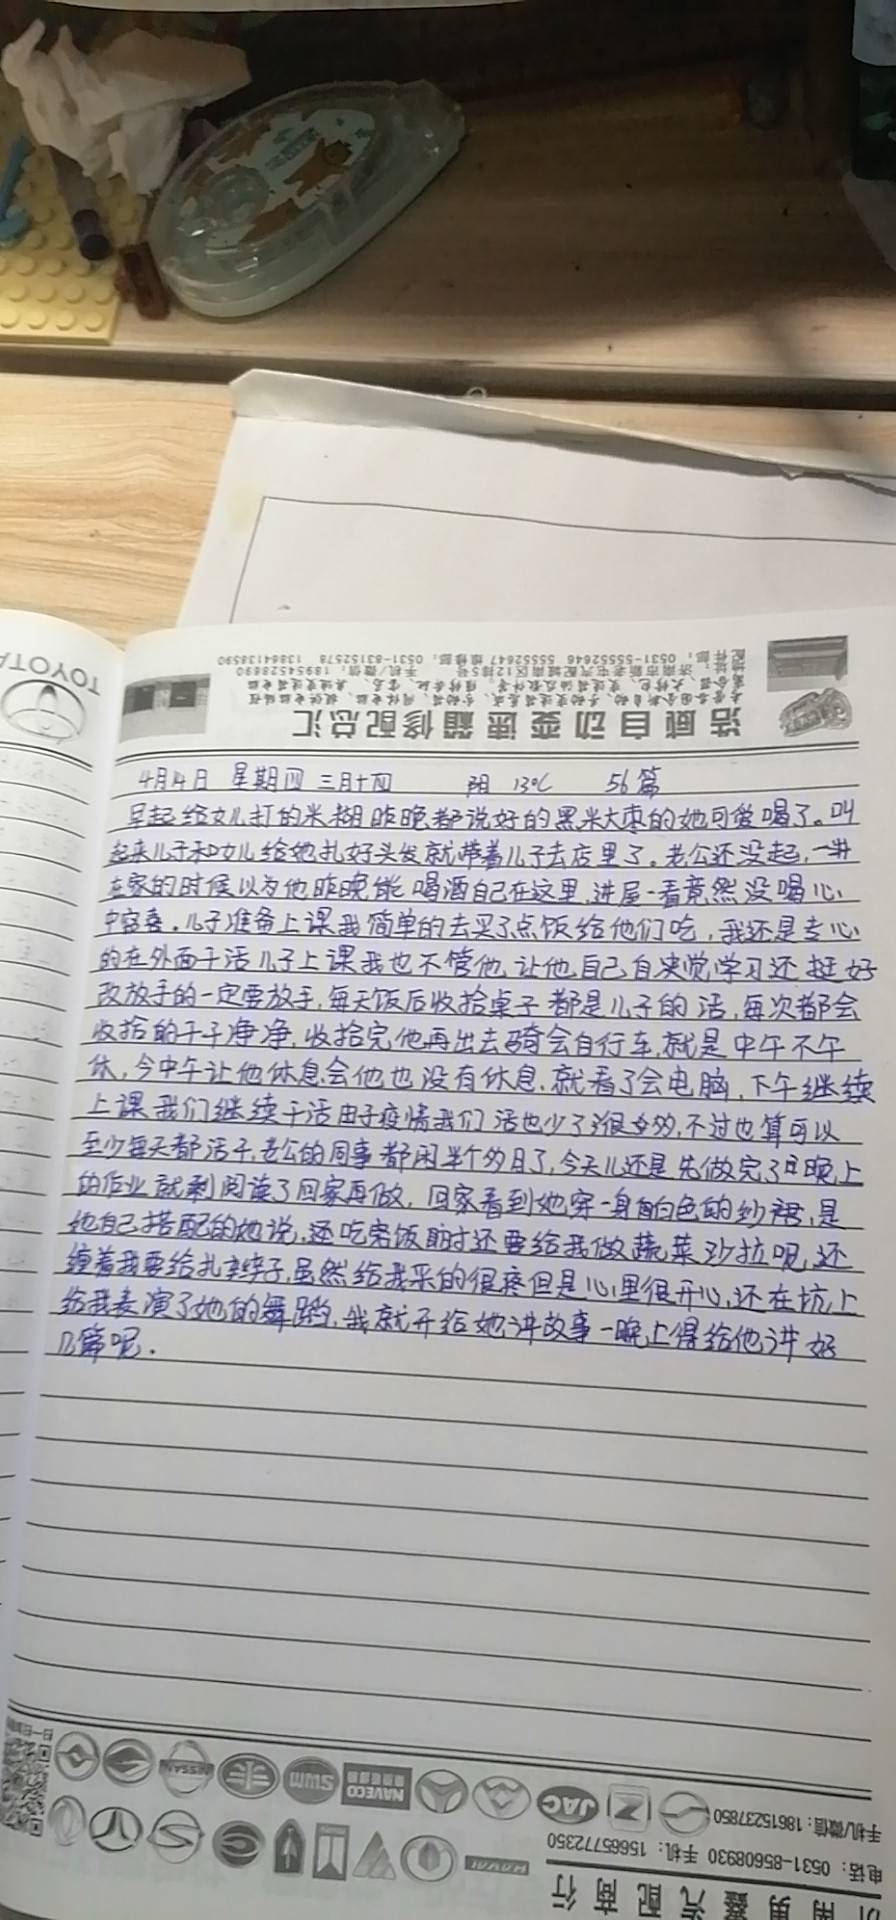 浩威自动变速箱修配总汇
4月14日 星期四 三月十四 阴 13℃ 56篇
早起给女儿打的米糊昨晚都说好的黑米大枣的她可爱喝了。叫
起来儿子和女儿给她扎好头发就带着儿子去店里了。老公还没起,
在家的时候以为他昨晚能喝酒自己在这里,进屋一看竟然没喝心
中窃喜.儿子准备上课我简单的去买了点饭给他们吃,我还是专心
的在外面干活儿子上课我也不管他,让他自己自决觉学习还挺好
改放手的一定要放手,每天饭后收拾桌子都是儿子的活,每次都会
收拾的干干净净,收拾完他再出去骑会自行车,就是中午不午
休,今中午让他休息会他也没有休息.就看了会电脑,下午继续
上课我们继续干活由于疫情我们活也少了很多,不过也算可以
至少每天都活干,老公的同事都闲半个多月了,今天儿还是先做完了晚上
的作业就剩阅读了回家再做,回家看到她穿一身白色的纱裙,是
他自己搭配的她说,还吃完饭时还要给我做蔬菜沙拉呢,还
缠着我要给扎辫子,虽然给我采的很疼但是心里很开心,还在坑上
给我表演了她的舞蹈,我就开给她讲故事一晚上得给他讲好
几篇呢.
TOYOTA
NISSAN
SWM
NAVECO
JAC
HAVAL
手机/微信:18615237850
电话:0531-85608930 手机:15665772350
济南勇鑫汽配商行